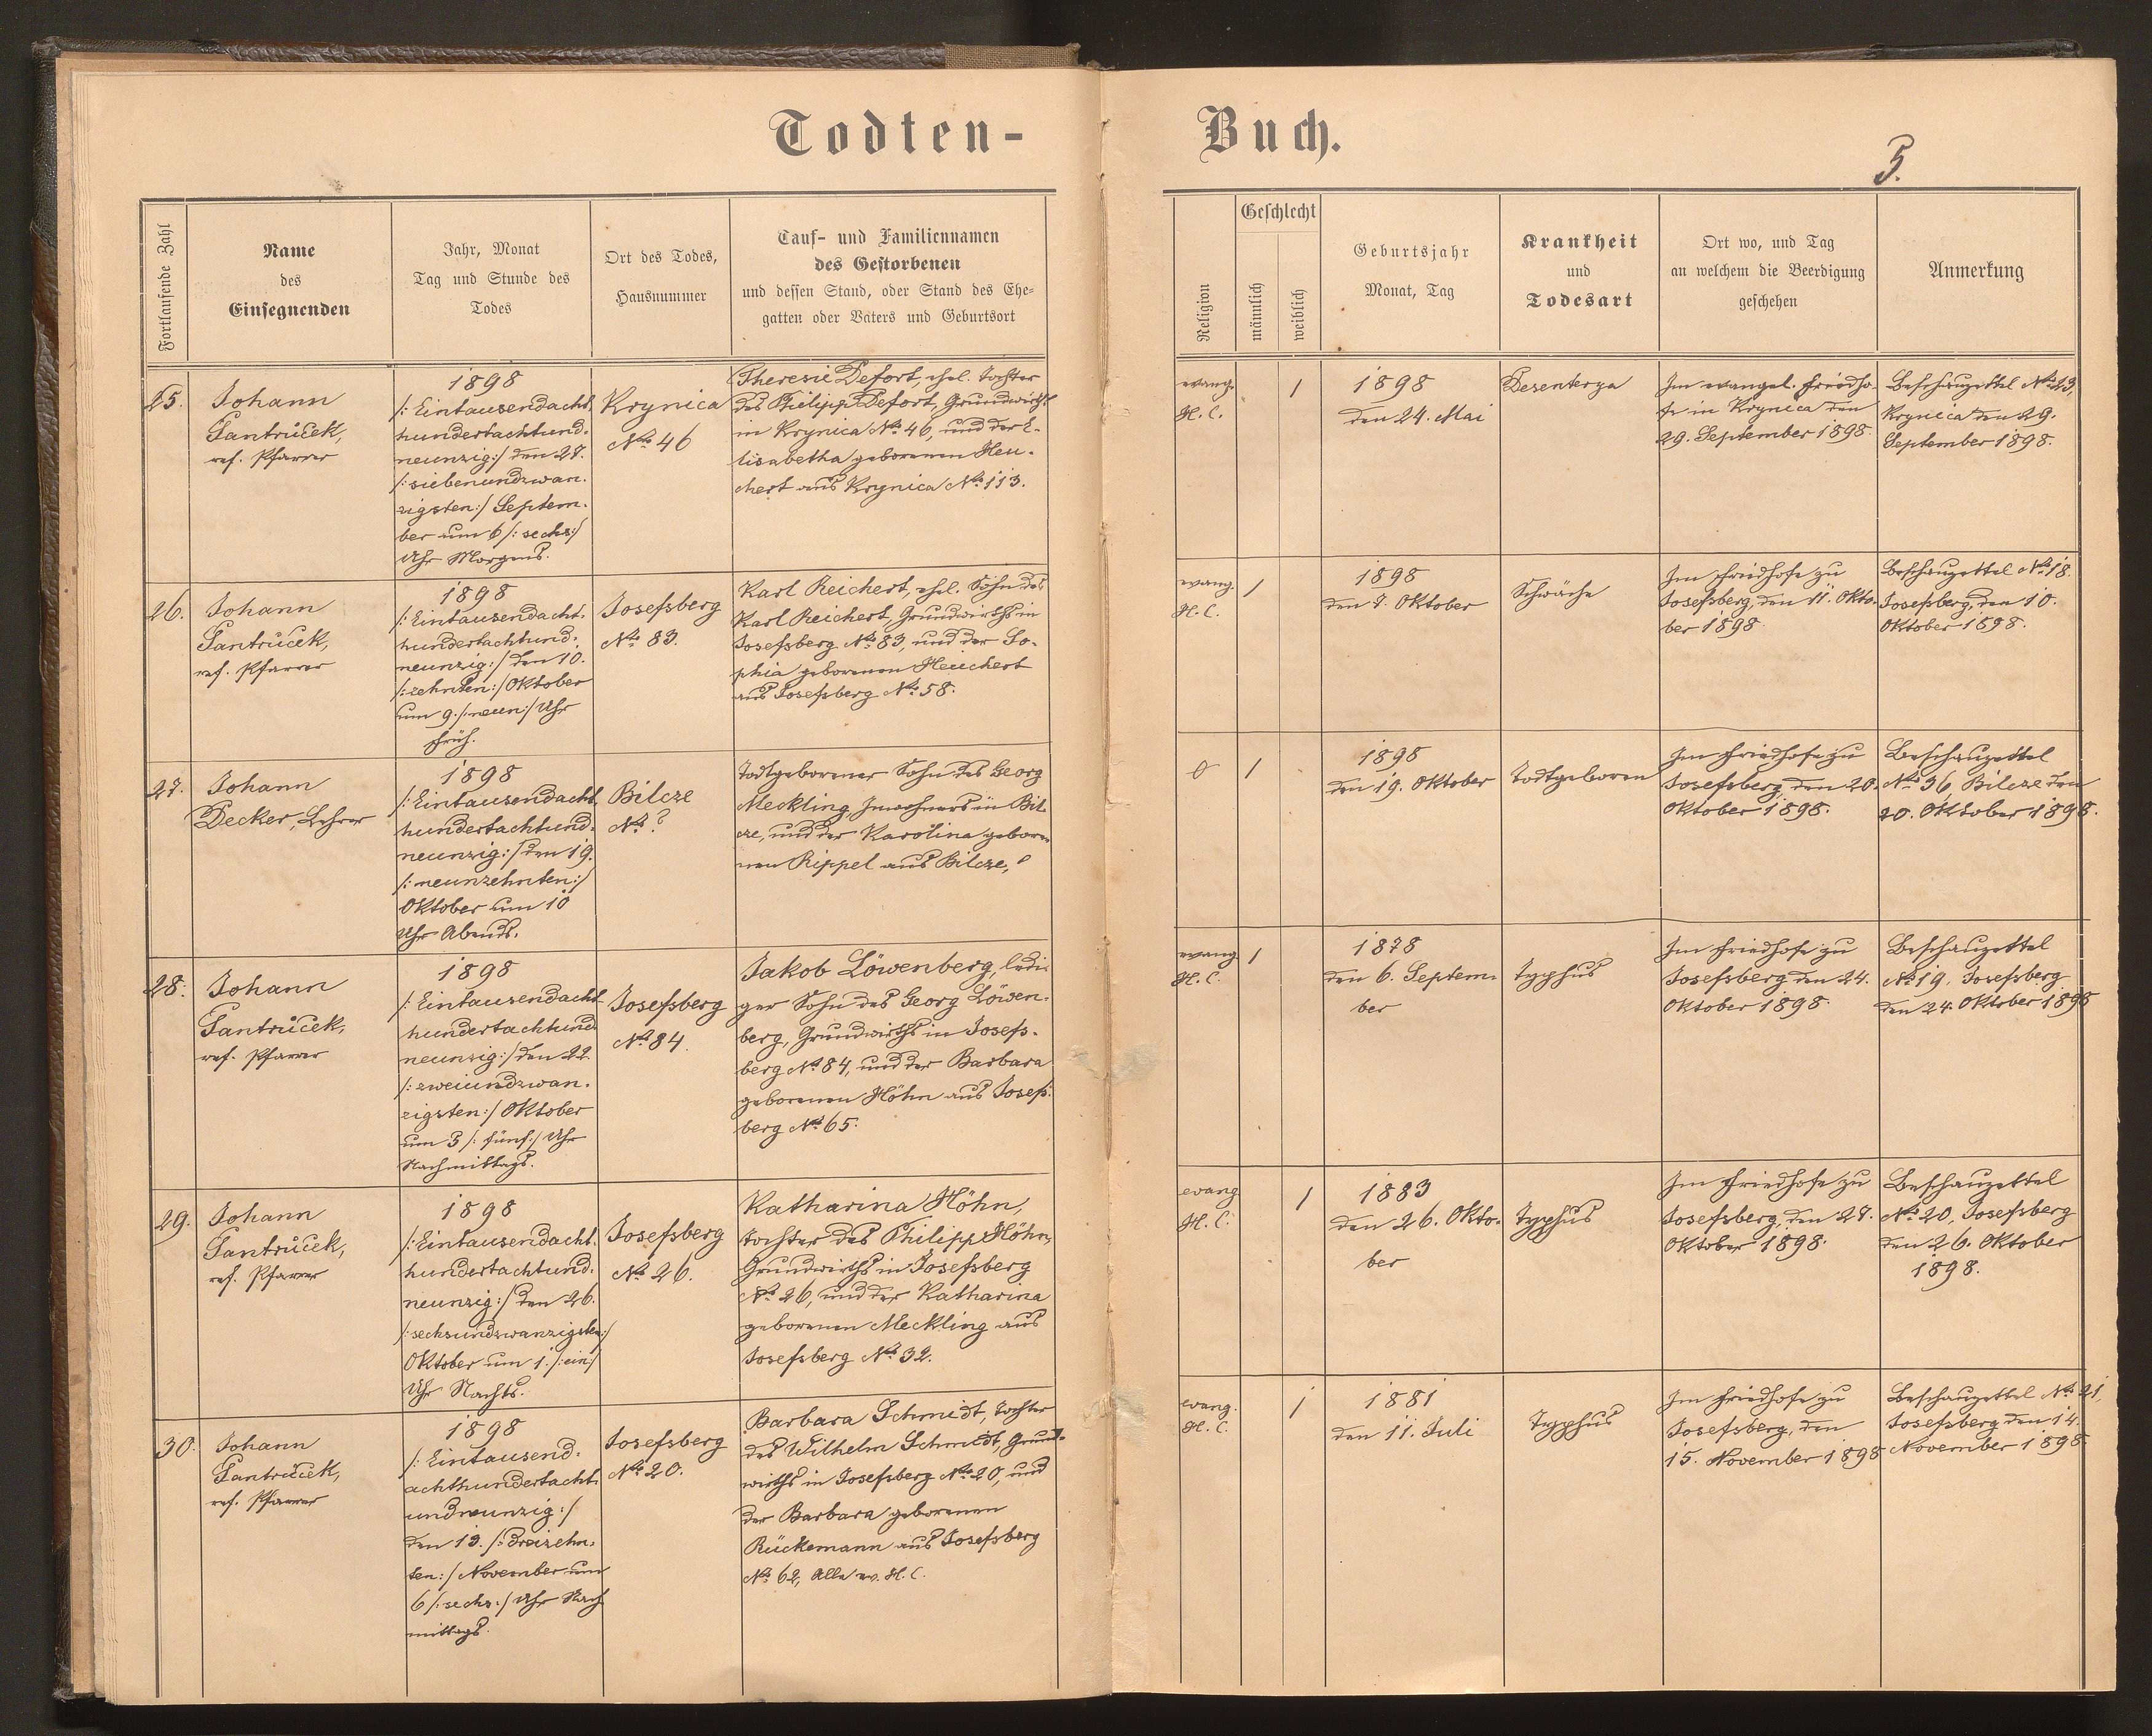 Todten-
Buch.
5.
Fortlaufende Zahl
Name
des
Einsegnenden
Jahr, Monat
Tag und Stunde des
Todes
Ort des Todes,
Hausnummer
Tauf- und Familiennamen
des Gestorbenen
und dessen Stand, oder Stand des Ehe-
gatten oder Vaters und Geburtsort
Religion
Geschlecht
männlich
weiblich
Geburtsjahr
Monat, Tag
Krankheit
und
Todesart
Ort wo, und Tag
an welchem die Beerdigung
geschehen
Anmerkung
25.
Johann
Santrůček,
ref. Pfarrer
1898
/: Eintausendacht-
hundertachtund-
neunzig:/ den 27.
/: siebenundzwan-
zigsten:/ Septem-
ber um 6 /: sechs:/
Uhr Morgens.
Krynica
No 46
Theresie Defort, ehel. Tochter
des Philipp Defort, Grundwirths
in Krynica No 46, und der E-
lisabetha geborenen Heu-
chert aus Krynica No 113.
evang.
H. C.
1
1898
den 24. Mai
Desenterya
Im evangel. Friedho-
fe in Krynica den
29. September 1898.
Beschauzettel No 23,
Krynica den 29.
September 1898.
26.
Johann
Santrůček,
ref. Pfarrer
1898
/: Eintausendacht-
hundertachtund-
neunzig:/ den 10.
/: zehnten:/ Oktober
um 9. /: neun:/ Uhr
früh.
Josefsberg
No 83.
Karl Reichert, ehel. Sohn des
Karl Reichert, Grundwirths in
Josefsberg No 83, und der So-
phia geborenen Heuchert
aus Josefsberg No 58.
evang.
H. C.
1
1898
den 7. Oktober
Schwäche
Im Friedhofe zu
Josefsberg, den 11. Okto-
ber 1898.
Beschauzettel No 18.
Josefsberg, den 10.
Oktober 1898.
27.
Johann
Decker, Lehrer
1898
/: Eintausendacht-
hundertachtund-
neunzig:/ den 19.
/: neunzehnten:/
Oktober um 10
Uhr Abends.
Bilcze
No ?
Todtgeborener Sohn des Georg
Meckling, Inwohners in Bil-
cze, und der Karolina gebore-
nen Rippel aus Bilcze,
0
1
1898
den 19. Oktober
Todtgeboren
Im Friedhofe zu
Josefsberg den 20.
Oktober 1898.
Beschauzettel
No 36, Bilcze den
20. Oktober 1898.
28.
Johann
Santrůček,
ref. Pfarrer
1898
/: Eintausendacht-
hundertachtund-
neunzig:/ den 22.
/: zweiundzwan-
zigsten:/ Oktober
um 5 /: fünf:/ Uhr
Nachmittags.
Josefsberg
No 84.
Jakob Löwenberg, ledi-
ger Sohn des Georg Löwen-
berg, Grundwirths in Josefs-
berg No 84, und der Barbara
geborenen Höhn aus Josefs-
berg No 65.
evang.
H. C.
1
1878
den 6. Septem-
ber
Typhus
Im Friedhofe zu
Josefsberg den 24.
Oktober 1898.
Beschauzettel
No 19, Josefsberg
den 24. Oktober 1898
29.
Johann
Santrůček,
ref. Pfarrer
1898
/: Eintausendacht-
hundertachtund-
neunzig:/ den 26.
/: sechsundzwanzigsten:/
Oktober um 1. /: ein:/
Uhr Nachts.
Josefsberg
No 26.
Katharina Höhn,
Tochter des Philipp Höhn,
Grundwirths in Josefsberg
No 26, und der Katharina
geborenen Meckling aus
Josefsberg No 32.
evang.
H. C.
1
1883
den 26. Okto-
ber
Typhus
Im Friedhofe zu
Josefsberg, den 27.
Oktober 1898.
Beschauzettel
No 20, Josefsberg
den 26. Oktober
1898.
30.
Johann
Santrůček,
ref. Pfarrer
1898
/: Eintausend-
achthundertacht-
undneunzig:/
den 13. /: dreizehn-
ten:/ November um
6 /: sechs:/ Uhr Nach
mittags.
Josefsberg
No 20.
Barbara Schmidt, Tochter
des Wilhelm Schmidt, Grund-
wirths in Josefsberg No 20, und
der Barbara geborenen
Rückemann aus Josefsberg
No 62, Alle ev. H. C.
evang.
H. C.
1
1881
den 11. Juli
Typhus
Im Friedhofe zu
Josefsberg, den
15. November 1898
Beschauzettel No 21,
Josefsberg den 14.
November 1898.